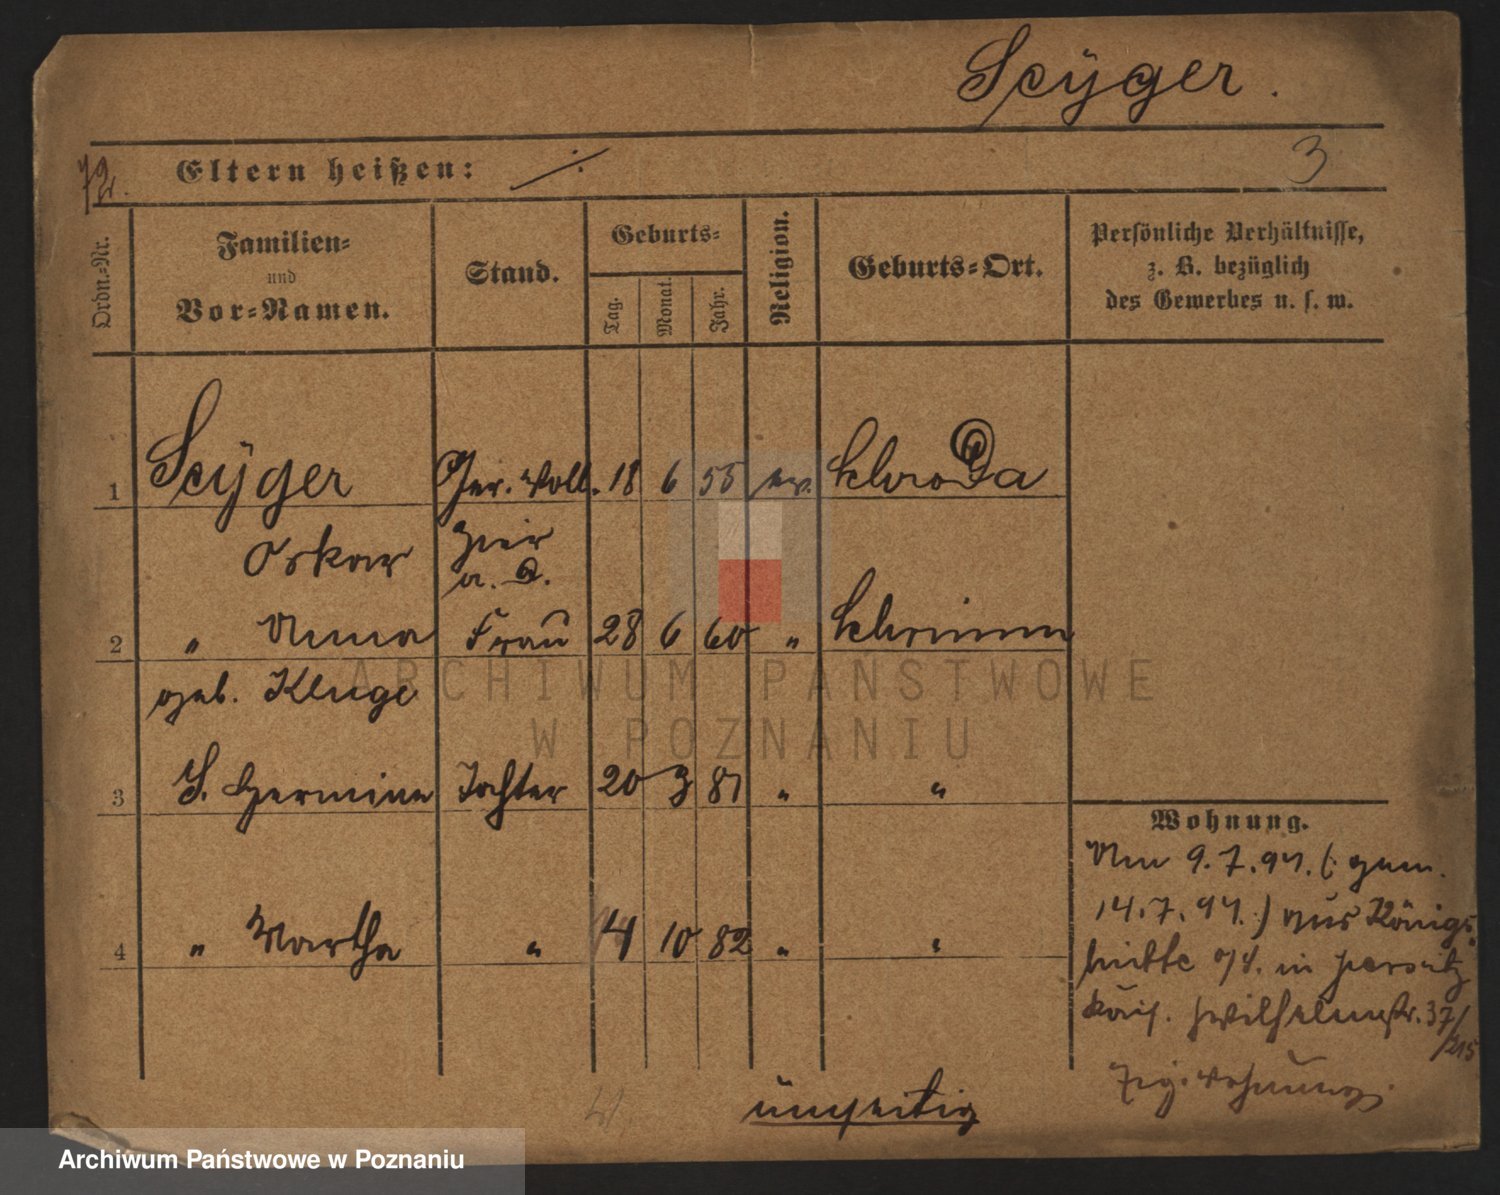 Scÿger.
72.
Eltern heißen: ./.
3
Ordn.-Nr.
Familien-
und
Vor-Namen.
Stand.
Geburts-
Tag.
Monat.
Jahr.
Religion.
Geburts-Ort.
Persönliche Verhältnisse,
z. B. bezüglich
des Gewerbes u. s. w.
1 Scÿger Ger. Voll. 18 6 55 ev. Schroda
Oskar zier
a. D.
2 " Anna Frau 28 6 60 " Schrimm
geb. Kluge
3 S. Hermine Tochter 20 3 81 " "
4 " Martha " 14 10 82 " "
Wohnung.
Am 9.7.94. (: gem.
14.7.94. :) aus Königs
hütte o/S. in Jersitz
Kais. Wilhelmstr. 37/
/215
Zig. Wohnung.
umseitig
ARCHIWUM PAŃSTWOWE
W POZNANIU
Archiwum Państwowe w Poznaniu